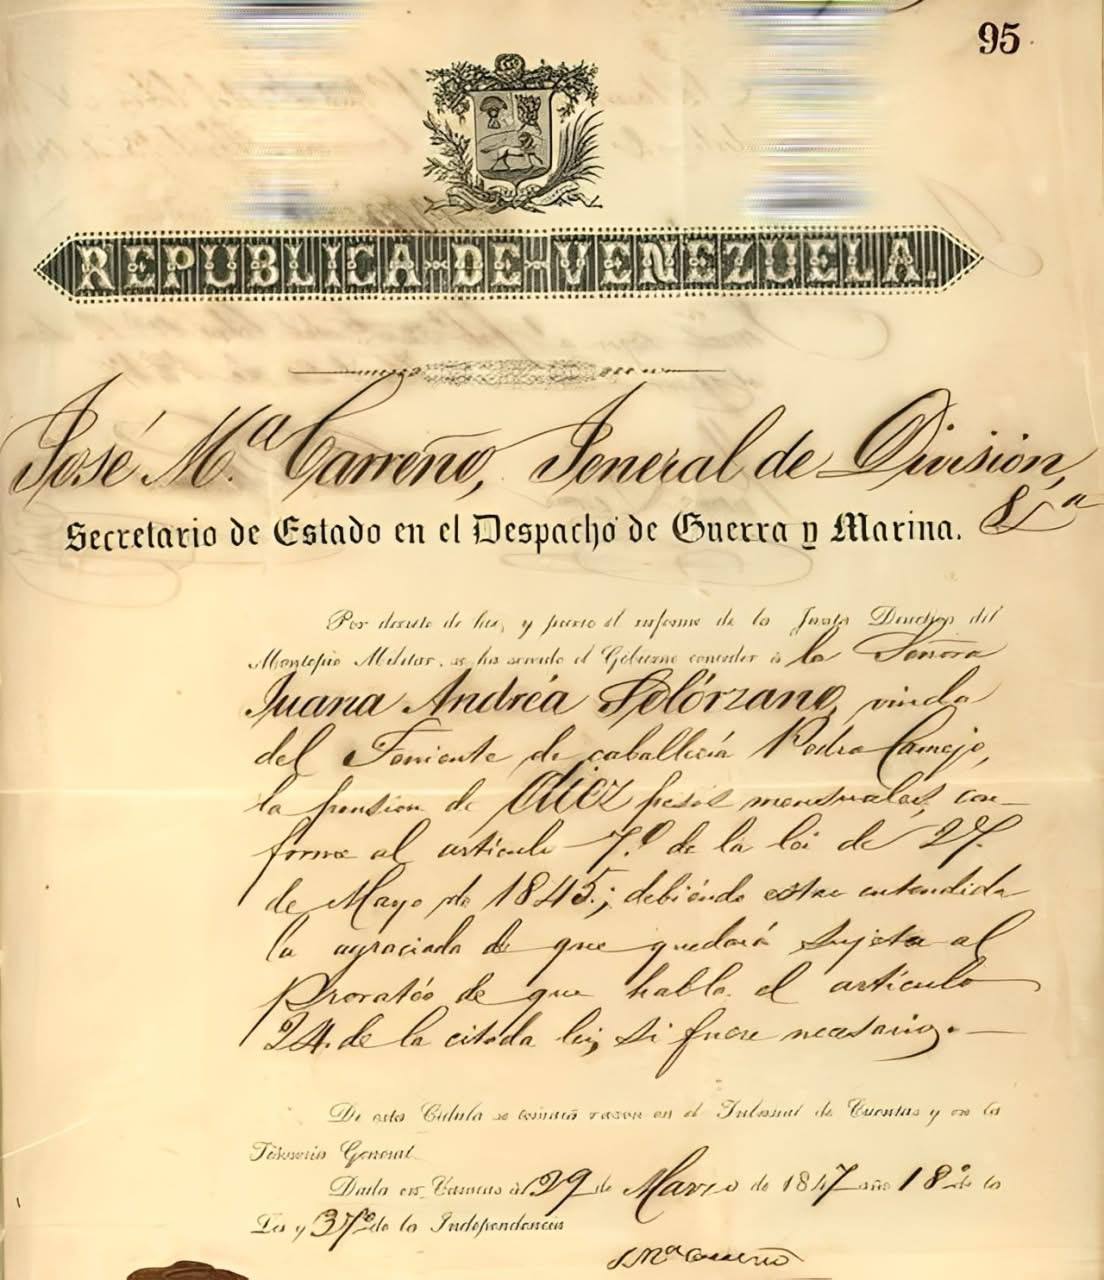 95.
REPUBLICA DE VENEZUELA.
José M.ª Carreño, Jeneral de División,
Secretario de Estado en el Despacho de Guerra y Marina. &ª
Por decreto de hoi, y previo el informe de la Junta Directiva del
Montepio Militar, se ha servido el Gobierno conceder á la Señora
Juana Andréa Solórzano, viuda
del Teniente de caballería Pedro Camejo,
la pension de diez pesos mensuales, con-
forme al artículo 7.º de la lei de 27.
de Mayo de 1845.; debiendo estar entendida
la agraciada de que quedará sujeta al
Prorratéo de que habla el artículo
24. de la citada lei, si fuere necesario. —
De esta Cédula se tomará razon en el Tribunal de Cuentas y en la
Tesoreria General.
Dada en Caracas á 29 de Marzo de 1847 año 18º de la
Lei y 37º de la Independencia
J. Mª Carreño